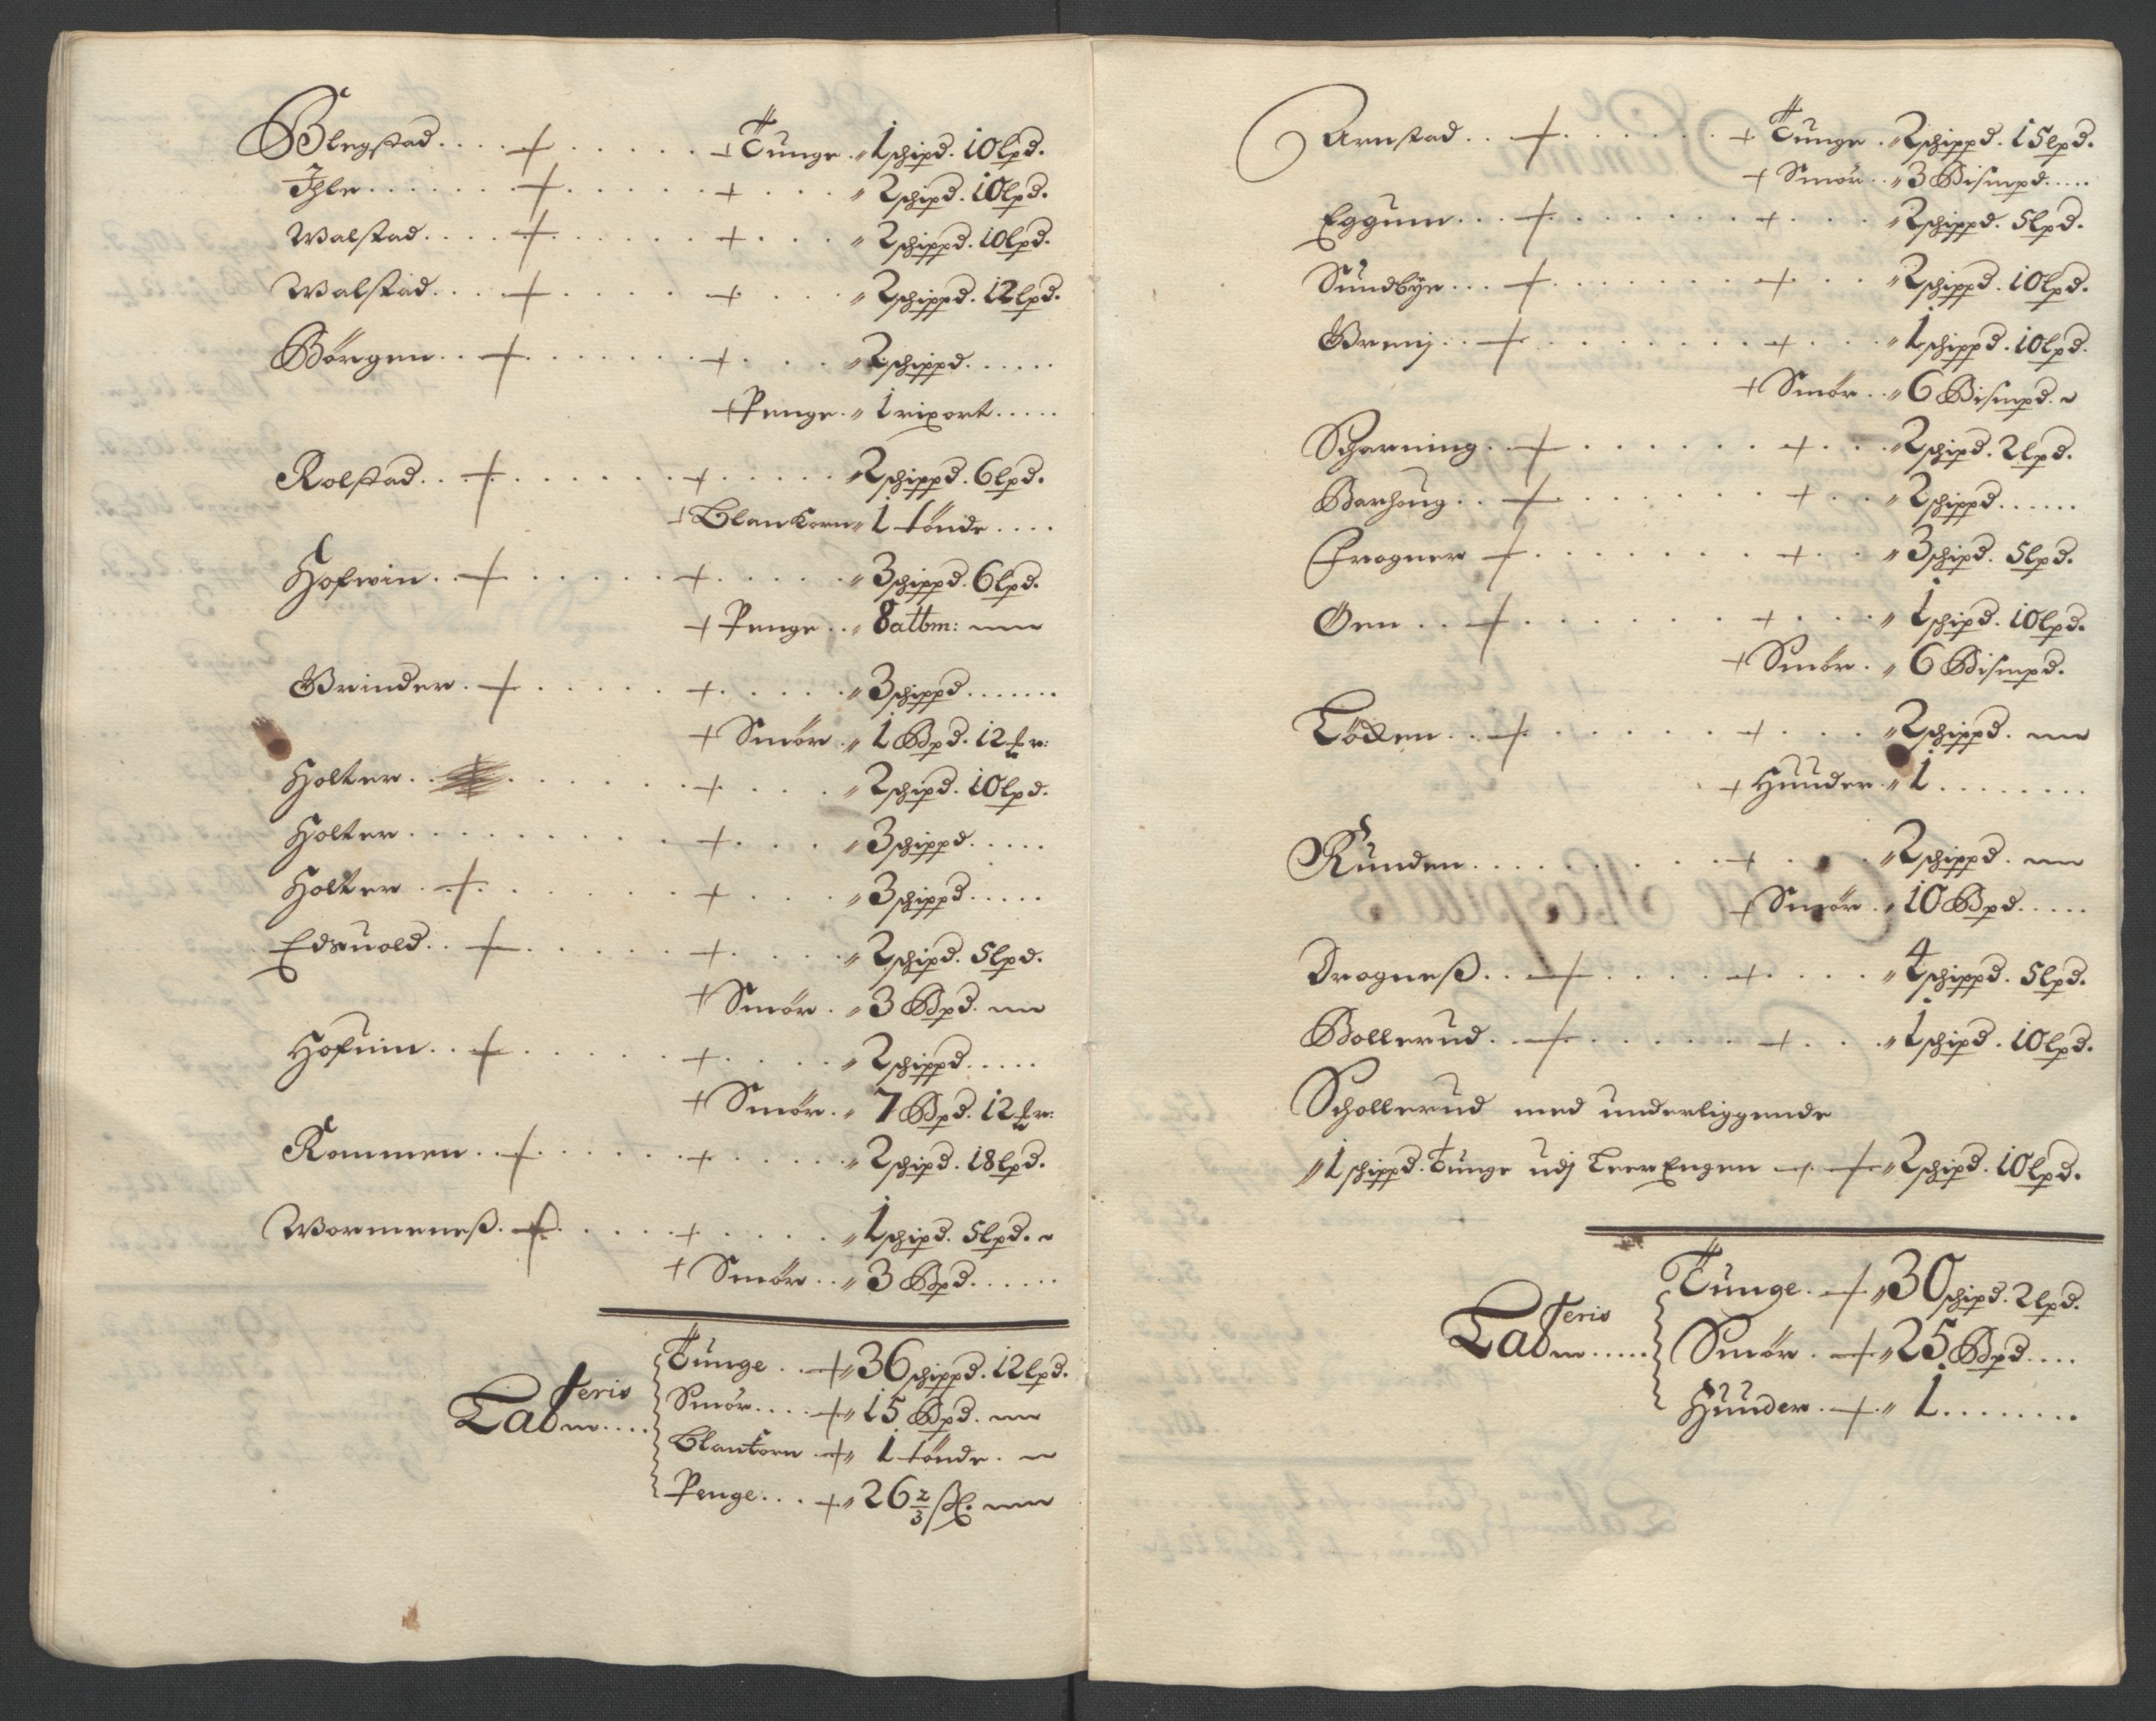 Blegstad .... + ..... + Tunge . 〃 1 schipd. 10 lpd.
Ihle ...... + ..... + ... 〃 2 schipd. 10 lpd.
Walstad .... + ..... + ... 〃 2 schippd. 10 lpd.
Walstad ... + .... + ... 〃 2 schippd. 12 lpd.
Börgen .. + ...... + ... 〃 2 schippd ......
+ Penge . 〃 1 rixort .....
Rolstad .. + ...... + ..... 〃 2 schippd. 6 lpd.
+ Blankorn 〃 1 tönde ....
Hofwin .. + ..... + .... 〃 3 schippd. 6 lpd.
+ Penge .. 〃 8 albm:
Brinder . + ..... + .... 〃 3 schippd .......
+ Smör . 〃 1 Bpd. 12 mr:
Holter .. ...... + ... 〃 2 schipd. 10 lpd.
Holter ......... + ... 〃 3 schippd .....
Holter . + ...... + ... 〃 3 schippd .....
Edsuold .. + ..... + .... 〃 2 schipd. 5 lpd.
+ Smör . 〃 3 Bpd.
Hofuin .. + ..... + .... 〃 2 schippd .....
+ Smör . 〃 7 Bpd. 12 mr:
Kommen .. + ..... + .... 〃 2 schipd. 18 lpd.
Wormeneß . + .... + .... 〃 1 schipd. 5 lpd.
+ Smör .. 〃 3 Bpd ......
Tunge .. + 〃 36 schippd. 12 lpd.
Lateris
Smör .... + 〃 15 Bpd.
Blankorn . + 〃 1 tönde .
Penge ... + 〃 26 2/3 ßl.
Arnstad .. + ...... + Tunge . 〃 2 schippd. 15 lpd.
+ Smör .. 〃 3 Bismpd .....
Eggum ... + ...... + ... 〃 2 schippd. 5 lpd.
Sundbÿe ... + ...... + ... 〃 2 schippd. 10 lpd.
Brenj .. + ....... + ... 〃 1 schippd. 10 lpd.
+ Smör .. 〃 6 Bismpd.
Scharning . + ...... + ... 〃 2 schipd. 2 lpd.
Barhoug .. + ...... + .. 〃 2 schippd ......
Frogner + ....... + .. 〃 3 schipd. 5 lpd.
Öen .. + ...... + ... 〃 1 schipd. 10 lpd.
+ Smör . 〃 6 Bismpd.
Löden .. + ..... + ... 〃 2 schippd.
+ Huuder . 〃 1 ........
Runden ......... + ... 〃 2 schippd.
+ Smör . 〃 10 Bpd .....
Drogneß .. + .... + .... 〃 4 schippd. 5 lpd.
Bollerud . + ..... + ... 〃 1 schipd. 10 lpd.
Schollerud med underliggende
〃 1 schippd. Tunge udj LeerEngen + 〃 2 schipd. 10 lpd.
Tunge . + 〃 30 schipd. 2 lpd.
Lateris
Smör . + 〃 25 Bpd ....
Huuder . + 〃 1 ........